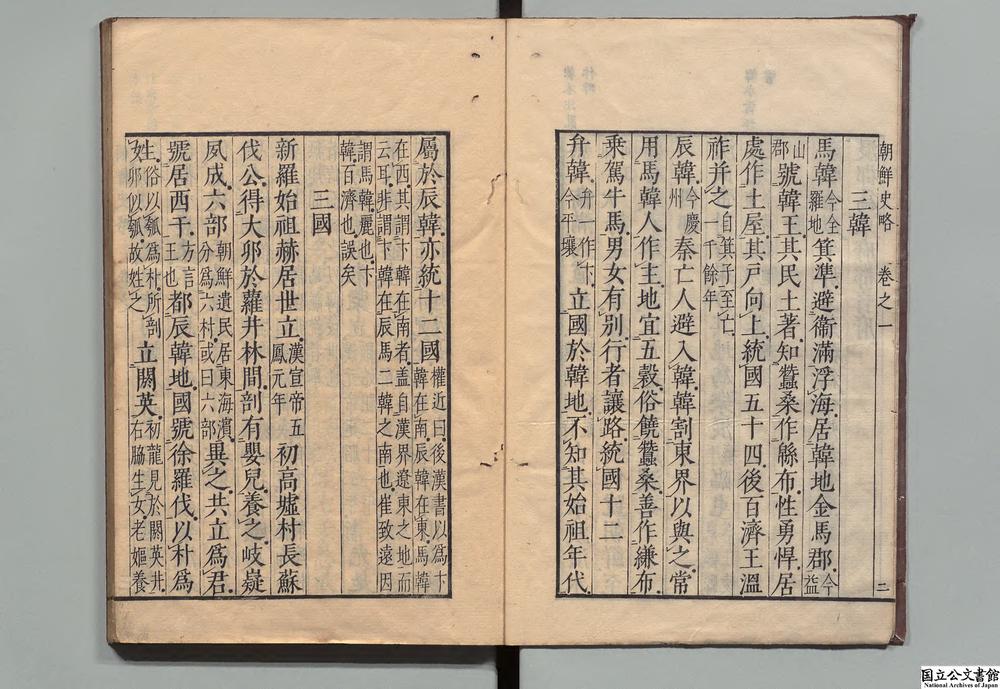 朝鮮史略 卷之一 二
三韓
馬韓今全羅地箕準避衛滿浮海居韓地金馬郡今益
山郡號韓王其民土著知蠶桑作緜布性勇悍居
處作土屋其戶向上統國五十四後百濟王溫
祚并之自箕子至亡一千餘年
辰韓今慶州秦亡人避入韓韓割東界以與之常
用馬韓人作主地宜五穀俗饒蠶桑善作縑布
乘駕牛馬男女有別行者讓路統國十二
弁韓弁一作卞今平壤立國於韓地不知其始祖年代
屬於辰韓亦統十二國權近曰後漢書以爲卞韓在南辰韓在東馬韓
在西其謂卞韓在南者蓋自漢界遼東之地而云耳非謂卞韓在辰馬二韓之南也崔致遠因
謂馬韓麗也卞韓百濟也誤矣
三國
新羅始祖赫居世立漢宣帝五鳳元年初高墟村長蘇
伐公得大卵於蘿井林間剖有嬰兒養之岐嶷
夙成六部朝鮮遺民居東海濱分爲六村或曰六部異之共立爲君
號居西干方言王也都辰韓地國號徐羅伐以朴爲
姓俗以瓠爲朴所剖卵似瓠故姓之立閼英初龍見於閼英井右脇生女老嫗養
国立公文書館
National Archives of Japan